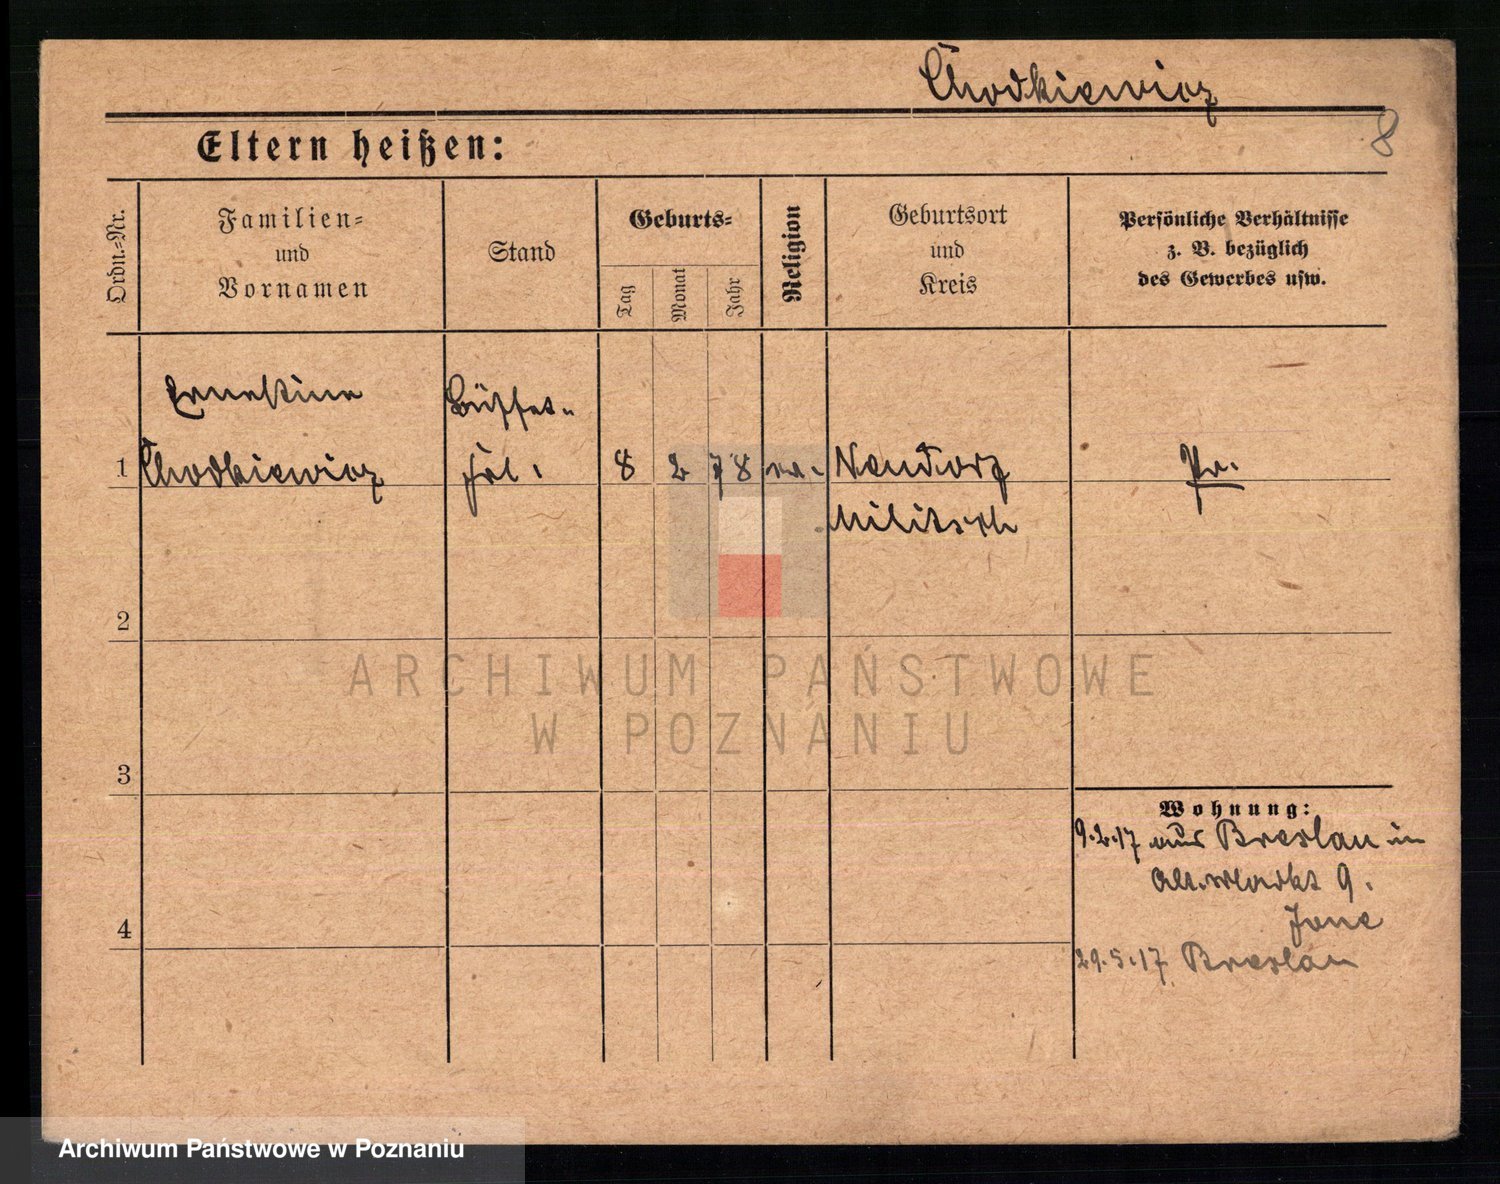 Chodkiewicz
8
Eltern heißen:
Ordn.-Nr.
Familien- und Vornamen
Stand
Geburts-
Tag
Monat
Jahr
Religion
Geburtsort und Kreis
Persönliche Verhältnisse
z. B. bezüglich
des Gewerbes usw.
Ernestine
Büffet-
1 Chodkiewicz frl. 8 2 78 ev. Neudorf Pr.
Militsch
2
3
4
Wohnung:
9.2.17 aus Breslau in
Alt. Markt 9.
29.5.17 Breslau
ARCHIWUM PAŃSTWOWE
W POZNANIU
Archiwum Państwowe w Poznaniu